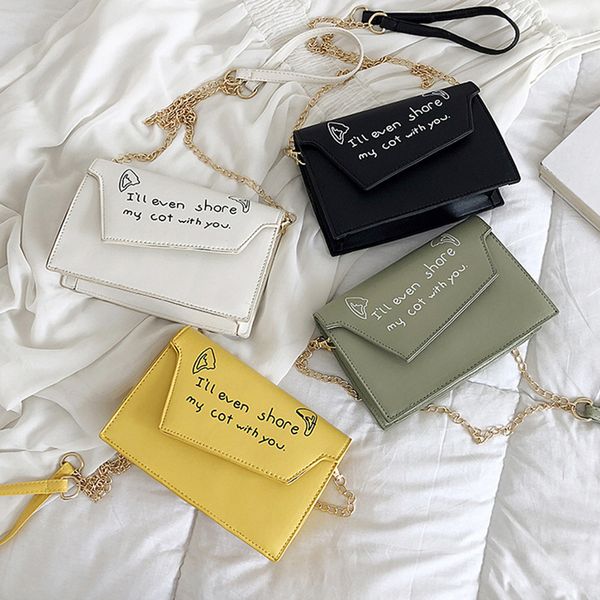 I'll even share
my cat with you.
I'll even share
my cat with you.
I'll even share
my cat with you.
I'll even share
my cat with you.